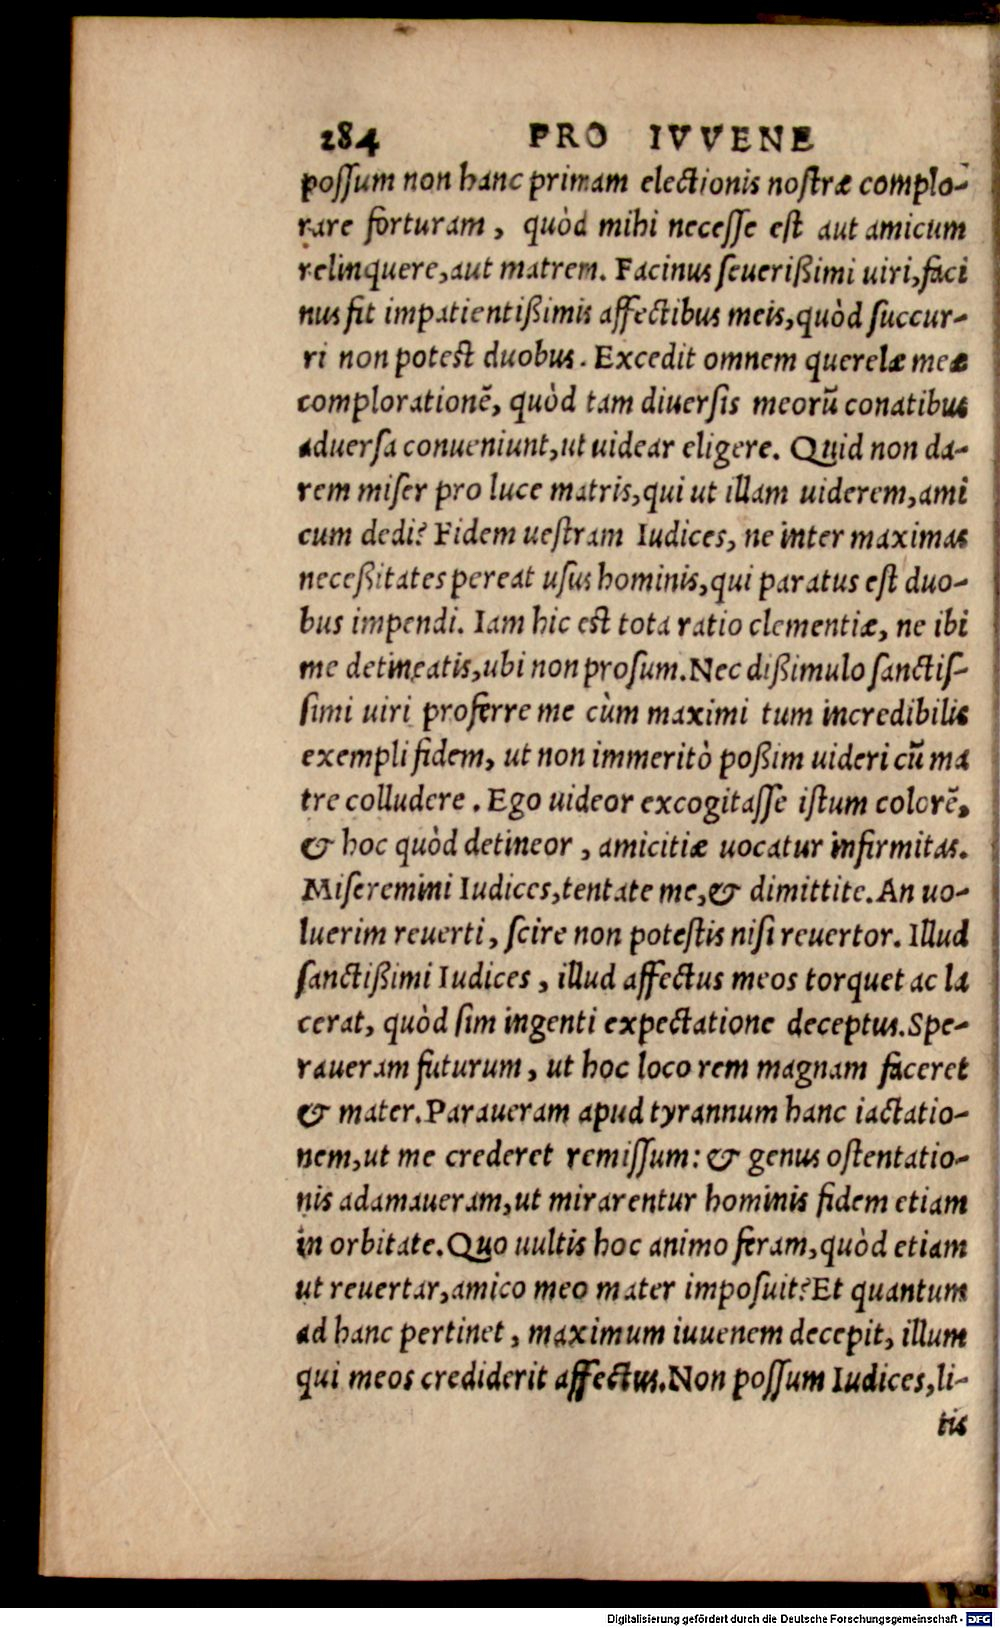 284 PRO IVVENE
possum non hanc primam electionis nostræ complo-
rare forturam, quòd mihi necesse est aut amicum
relinquere, aut matrem. Facinus seuerißimi uiri, faci
nus fit impatientißimis affectibus meis, quòd succur-
ri non potest duobus. Excedit omnem querelæ meæ
complorationē, quòd tam diuersis meorū conatibus
aduersa conueniunt, ut uidear eligere. Quid non da-
rem miser pro luce matris, qui ut illam uiderem, ami
cum dedi? Fidem uestram Iudices, ne inter maximas
neceßitates pereat usus hominis, qui paratus est duo-
bus impendi. Iam hic est tota ratio clementiæ, ne ibi
me detineatis, ubi non prosum. Nec dißimulo sanctis-
simi uiri proferre me cùm maximi tum incredibilis
exempli fidem, ut non immeritò poßim uideri cū ma
tre colludere. Ego uideor excogitasse istum colorē,
& hoc quòd detineor, amicitiæ uocatur infirmitas.
Miseremini Iudices, tentate me, & dimittite. An uo-
luerim reuerti, scire non potestis nisi reuertor. Illud
sanctißimi Iudices, illud affectus meos torquet ac la
cerat, quòd sim ingenti expectatione deceptus. Spe-
raueram futurum, ut hoc loco rem magnam faceret
& mater. Paraueram apud tyrannum hanc iactatio-
nem, ut me crederet remissum: & genus ostentatio-
nis adamaueram, ut mirarentur hominis fidem etiam
in orbitate. Quo uultis hoc animo feram, quòd etiam
ut reuertar, amico meo mater imposuit? Et quantum
ad hanc pertinet, maximum iuuenem decepit, illum
qui meos crediderit affectus. Non possum Iudices, li-
tis
Digitalisierung gefördert durch die Deutsche Forschungsgemeinschaft - DFG